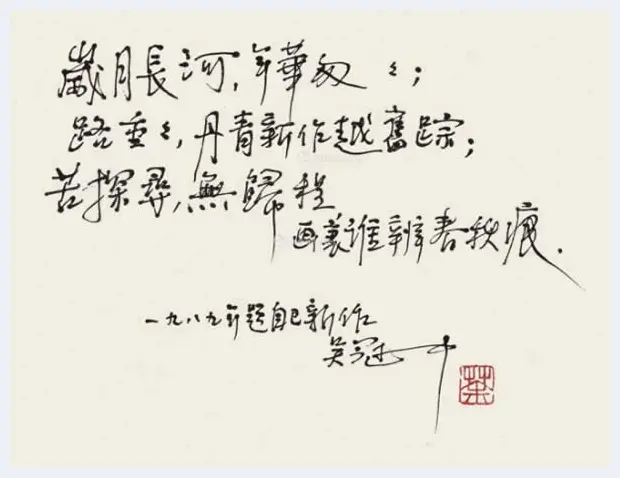 歲月長河，年華匆々；
路重々，丹青新作越舊踪；
苦探尋，無歸程
画裏谁辨春秋痕．
一九八九年题自己新作
吴冠中
荼